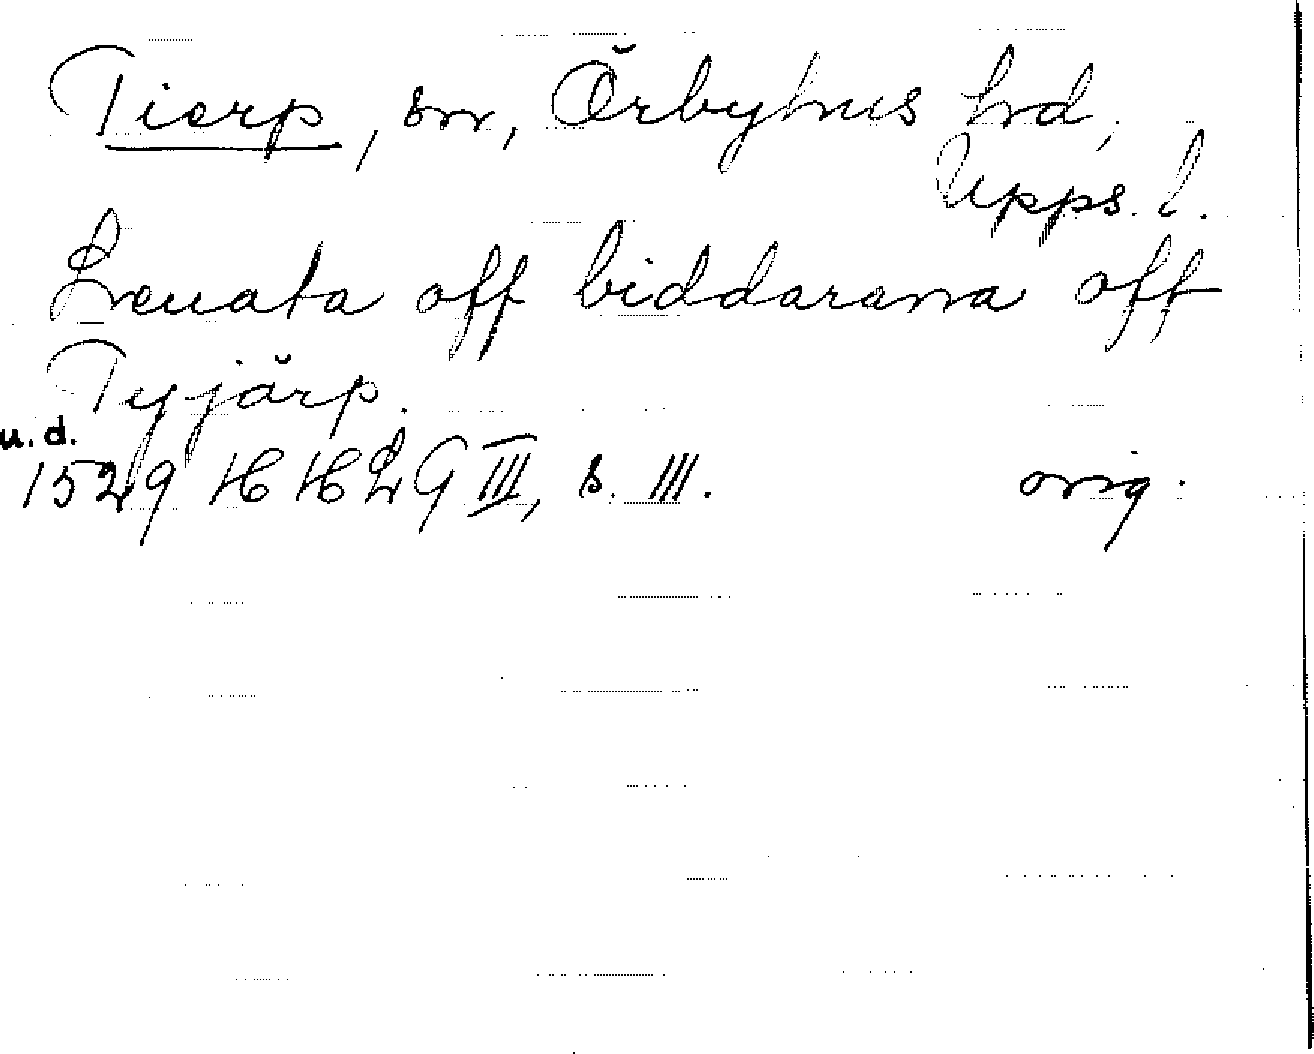 Tierp, sn, Örbyhus hd,
Upps. l.
Lenata off biddarana off
Tyjärp.
u. d.
1529 HH LG III, s. 111.
orig.